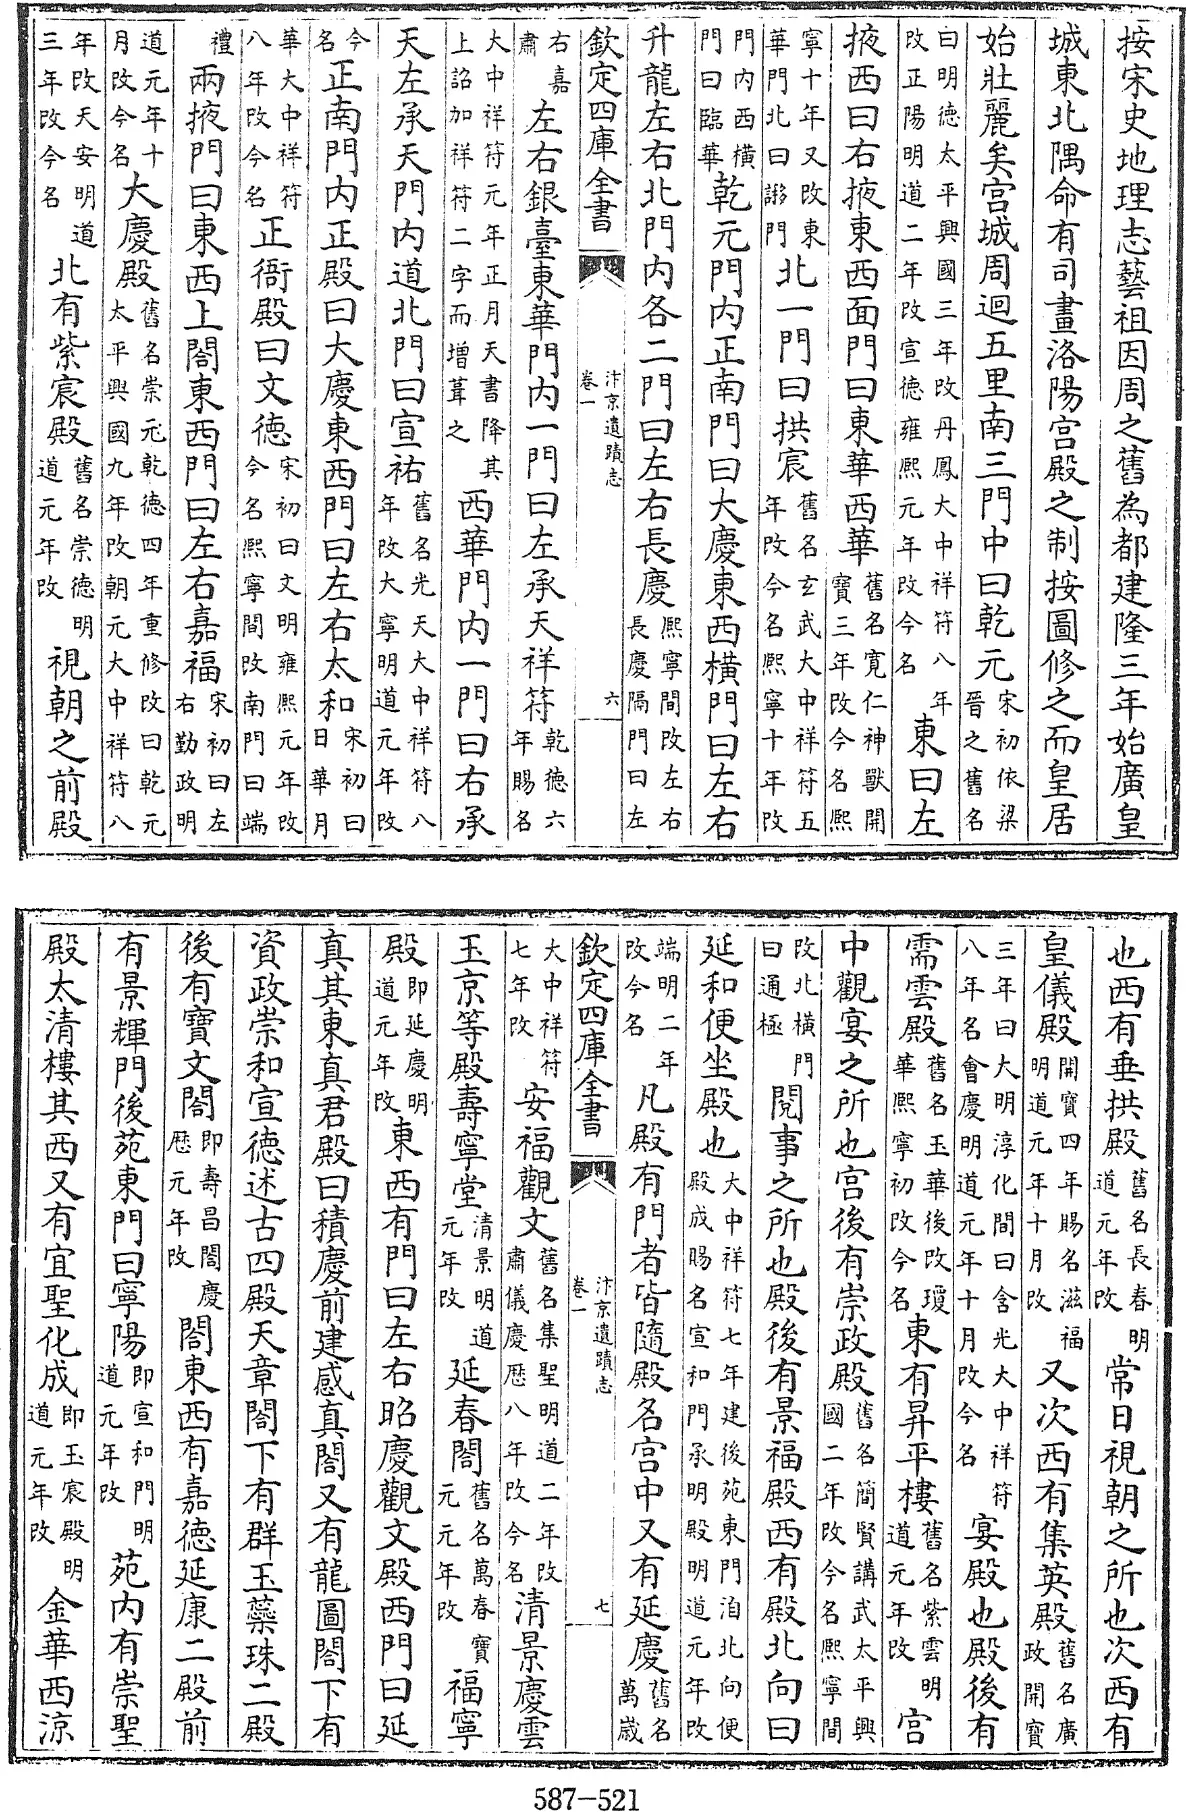 按宋史地理志藝祖因周之舊為都建隆三年始廣皇
城東北隅命有司畫洛陽宮殿之制按圖修之而皇居
始壯麗矣宮城周迴五里南三門中曰乾元宋初依梁晉之舊名
曰明德太平興國三年改丹鳳大中祥符八年改正陽明道二年改宣德雍熙元年改今名東曰左
掖西曰右掖東西面門曰東華西華舊名寛仁神獸開寶三年改今名熙
寧十年又改東華門北曰謻門北一門曰拱宸舊名玄武大中祥符五年改今名熙寧十年改
門内西橫門曰臨華乾元門内正南門曰大慶東西橫門曰左右
升龍左右北門内各二門曰左右長慶熙寧間改左右長慶隔門曰左
欽定四庫全書
汴京遺蹟志
卷一
六
右嘉肅左右銀臺東華門内一門曰左承天祥符乾德六年賜名
大中祥符元年正月天書降其上詔加祥符二字而增葺之西華門内一門曰右承
天左承天門内道北門曰宣祐舊名光天大中祥符八年改大寧明道元年改
今名正南門内正殿曰大慶東西門曰左右太和宋初曰日華月
華大中祥符八年改今名正衙殿曰文德宋初曰文明雍熙元年改今名熙寧間改南門曰端
禮兩掖門曰東西上閤東西門曰左右嘉福宋初曰左右勤政明
道元年十月改今名大慶殿舊名崇元乾德四年重修改曰乾元太平興國九年改朝元大中祥符八
年改天安明道三年改今名北有紫宸殿舊名崇德明道元年改視朝之前殿
也西有垂拱殿舊名長春明道元年改常日視朝之所也次西有
皇儀殿開寶四年賜名滋福明道元年十月改又次西有集英殿舊名廣政開寶
三年曰大明淳化間曰含光大中祥符八年名會慶明道元年十月改今名宴殿也殿後有
需雲殿舊名玉華後改瓊華熙寧初改今名東有昇平樓舊名紫雲明道元年改宮
中觀宴之所也宮後有崇政殿舊名簡賢講武太平興國二年改今名熙寧間
改北橫門曰通極閱事之所也殿後有景福殿西有殿北向曰
延和便坐殿也大中祥符七年建後苑東門洎北向便殿成賜名宣和門承明殿明道元年改
端明二年改今名凡殿有門者皆隨殿名宮中又有延慶舊名萬歲
欽定四庫全書
汴京遺蹟志
卷一
七
大中祥符七年改安福觀文舊名集聖明道二年改肅儀慶歴八年改今名清景慶雲
玉京等殿壽寧堂清景明道元年改延春閣舊名萬春寶元元年改福寧
殿即延慶明道元年改東西有門曰左右昭慶觀文殿西門曰延
真其東真君殿曰積慶前建感真閣又有龍圖閣下有
資政崇和宣德述古四殿天章閣下有群玉蘂珠二殿
後有寶文閣即壽昌閣慶歴元年改閣東西有嘉德延康二殿前
有景輝門後苑東門曰寧陽即宣和門明道元年改苑内有崇聖
殿太清樓其西又有宜聖化成即玉宸殿明道元年改金華西涼
587-521